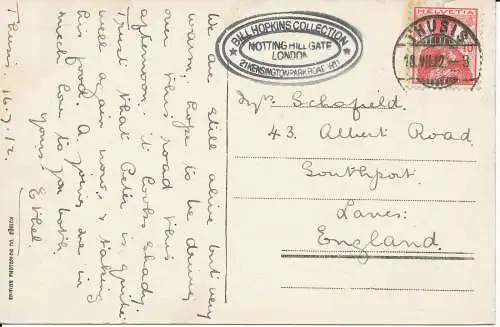 We are still alive but very
warm. Hope to be driving
this road this
afternoon: it looks shady.
Trust that Peter is quite
well again now & taking
his food. A joins me in
much love to you both
Yours
Ethel.
Thusis, 16.7.12.
EDITION PHOTOGLOB CO. ZÜRICH
BILL HOPKINS COLLECTION
NOTTING HILL GATE
LONDON
21 KENSINGTON PARK ROAD W11
HELVETIA
10
THUSIS
16.VII.12. - 3
Mrs Schofield.
43 Albert Road
Southport
Lancs:
England.